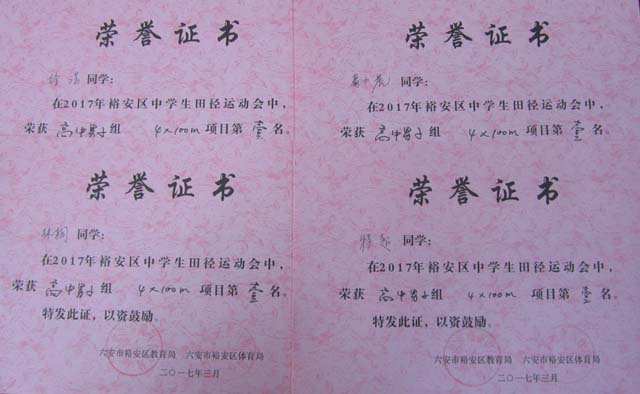 荣誉证书
同学：
在2017年裕安区中学生田径运动会中，
荣获 高中男子组 4×100m 项目第 壹 名。
荣誉证书
同学：
在2017年裕安区中学生田径运动会中，
荣获 高中男子组 4×100m 项目第 壹 名。
荣誉证书
同学：
在2017年裕安区中学生田径运动会中，
荣获 高中男子组 4×100m 项目第 壹 名。
特发此证，以资鼓励。
六安市裕安区教育局 六安市裕安区体育局
二〇一七年三月
荣誉证书
同学：
在2017年裕安区中学生田径运动会中，
荣获 高中男子组 4×100m 项目第 壹 名。
特发此证，以资鼓励。
六安市裕安区教育局 六安市裕安区体育局
二〇一七年三月